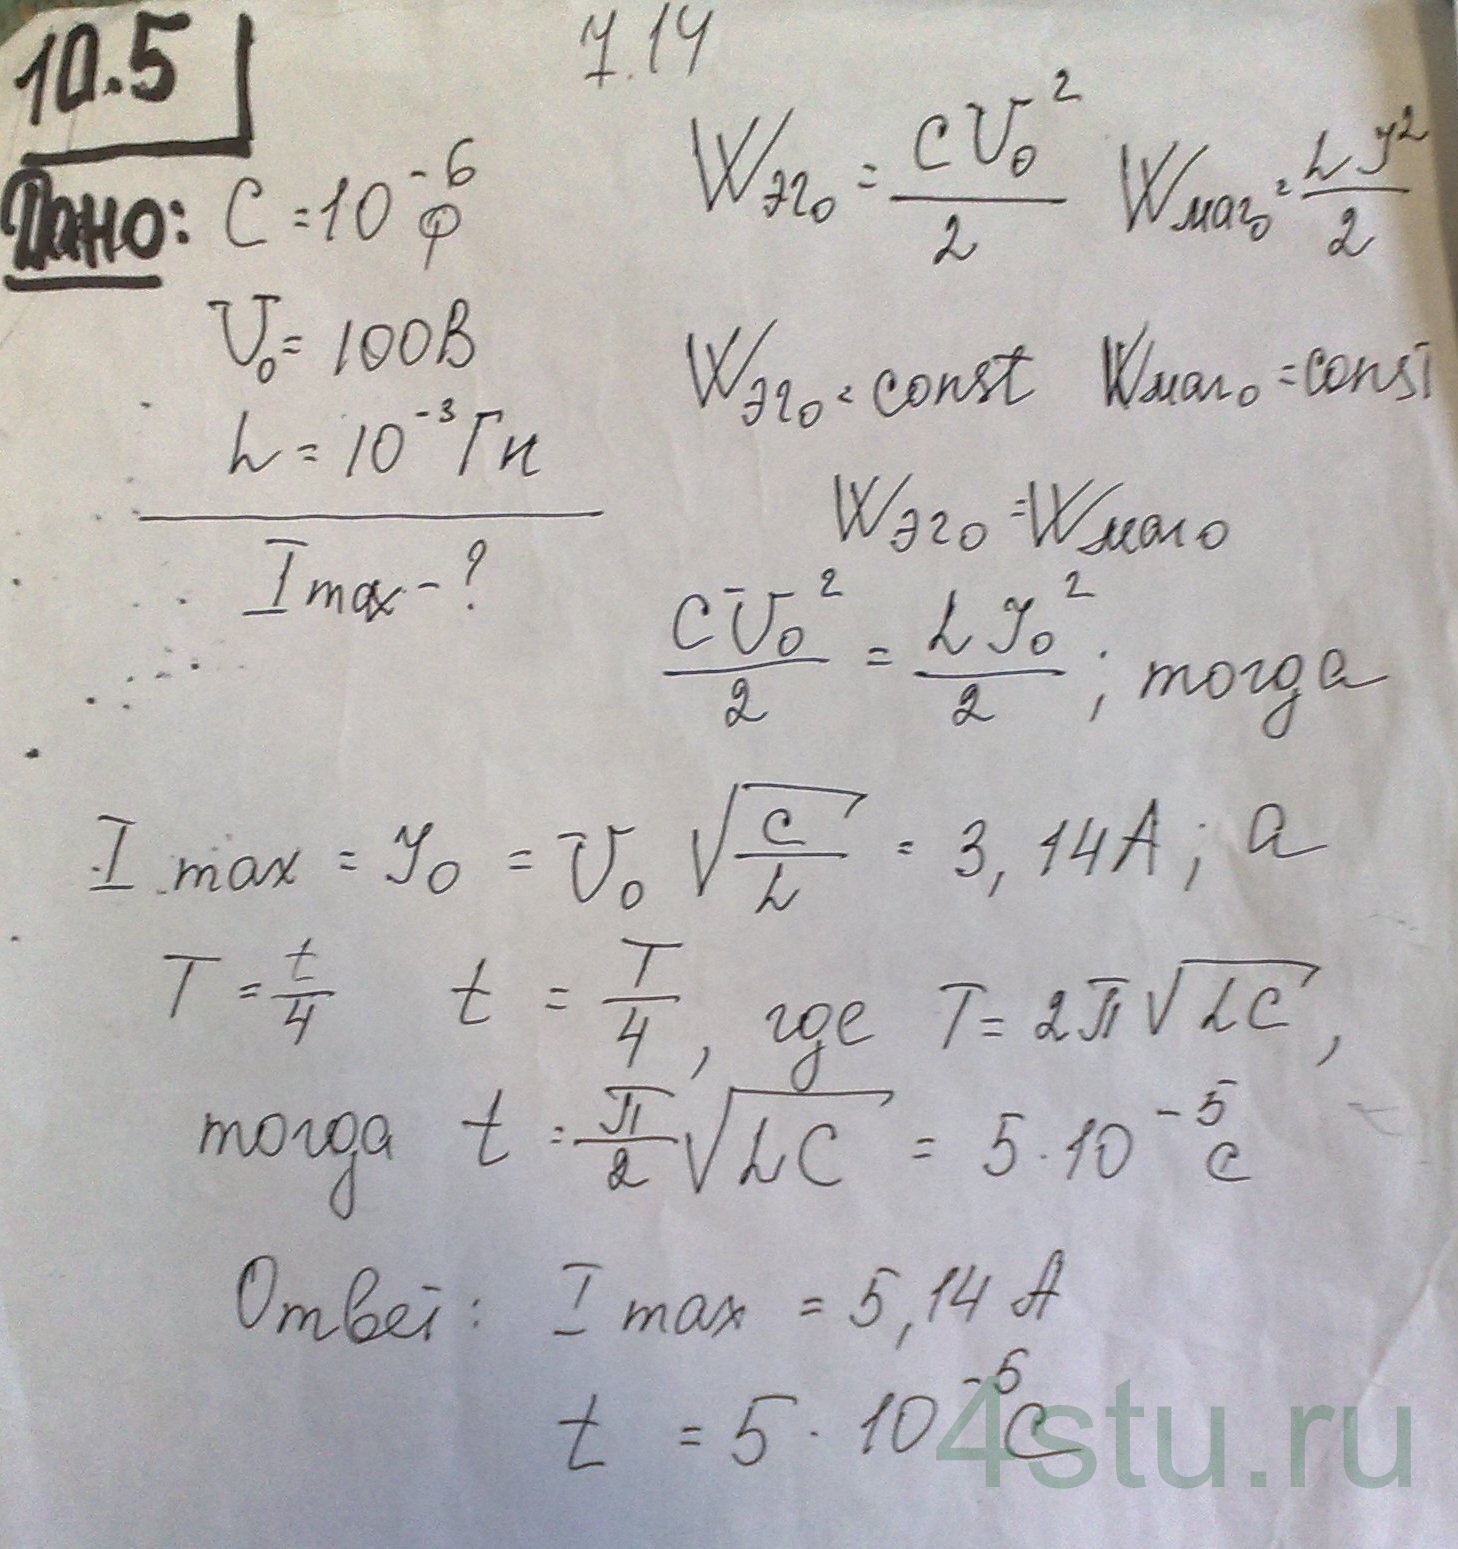 10.5
7.14
Дано: C = 10⁻⁶ Ф
U₀ = 100 В
L = 10⁻³ Гн
I max - ?
Wэл₀ = CU₀²/2 Wмаг₀ = LJ²/2
Wэл₀ = const Wмаг₀ = const
Wэл₀ = Wмаг₀
CU₀²/2 = LJ₀²/2 ; тогда
I max = J₀ = U₀ √(C/L) = 3,14 А ; а
T = t/4 t = T/4 , где T = 2π√(LC) ,
тогда t = π/2 √(LC) = 5·10⁻⁵ с
Ответ: I max = 5,14 А
t = 5·10⁻⁵ с
4stu.ru